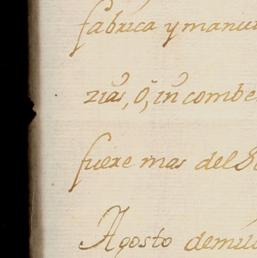 fabrica y manu
rias, ó, in combe
fuere mas del S
Agosto demil